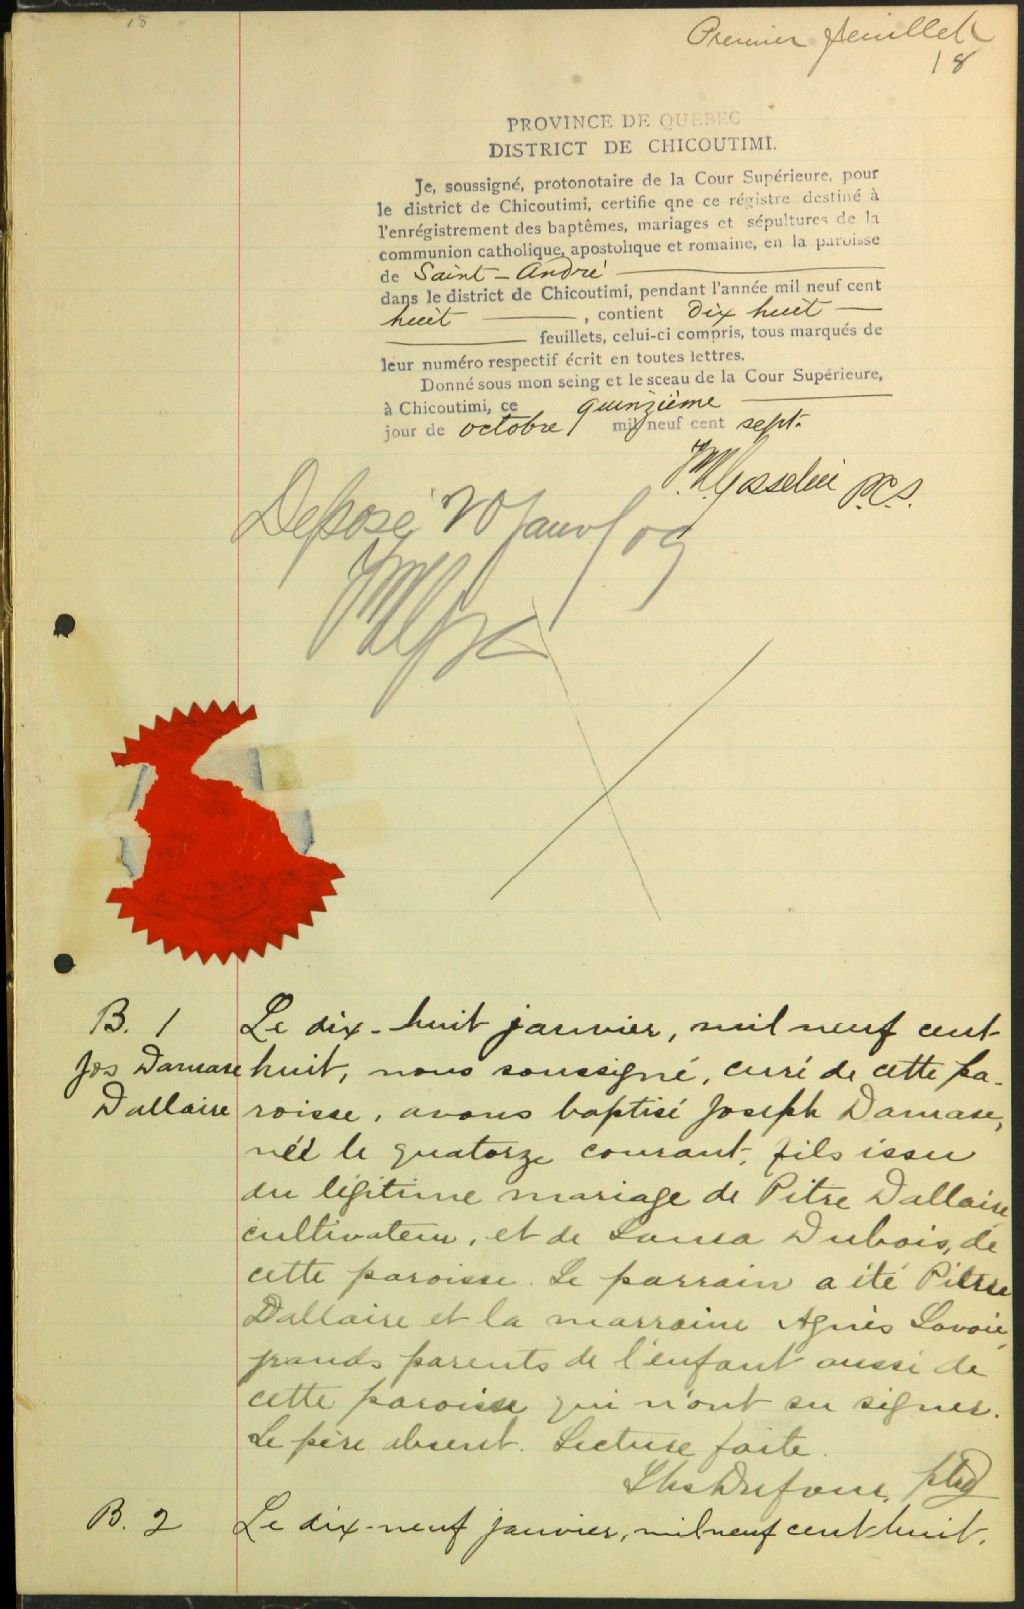 18
Premier feuillet
18
PROVINCE DE QUEBEC
DISTRICT DE CHICOUTIMI.
Je, soussigné, protonotaire de la Cour Supérieure, pour
le district de Chicoutimi, certifie qne ce régistre destiné à
l'enrégistrement des baptêmes, mariages et sépultures de la
communion catholique, apostolique et romaine, en la paroisse
de Saint-André
dans le district de Chicoutimi, pendant l'année mil neuf cent
huit , contient dix huit
feuillets, celui-ci compris, tous marqués de
leur numéro respectif écrit en toutes lettres.
Donné sous mon seing et le sceau de la Cour Supérieure,
à Chicoutimi, ce quinzième
jour de octobre mil neuf cent sept.
Gosselin P.C.S.
Déposé 20 janv/09
B. 1 Le dix-huit janvier, mil neuf cent
Jos Damase huit, nous soussigné, curé de cette pa-
Dallaire roisse, avons baptisé Joseph Damase,
né le quatorze courant, fils issu
du légitime mariage de Pitre Dallaire
cultivateur, et de Laura Dubois, de
cette paroisse. Le parrain a été Pitre
Dallaire et la marraine Agnès Lavoie,
grands parents de l'enfant aussi de
cette paroisse qui n'ont su signer.
Le père absent. Lecture faite.
Dufour, ptre
B. 2 Le dix-neuf janvier, mil neuf cent huit,